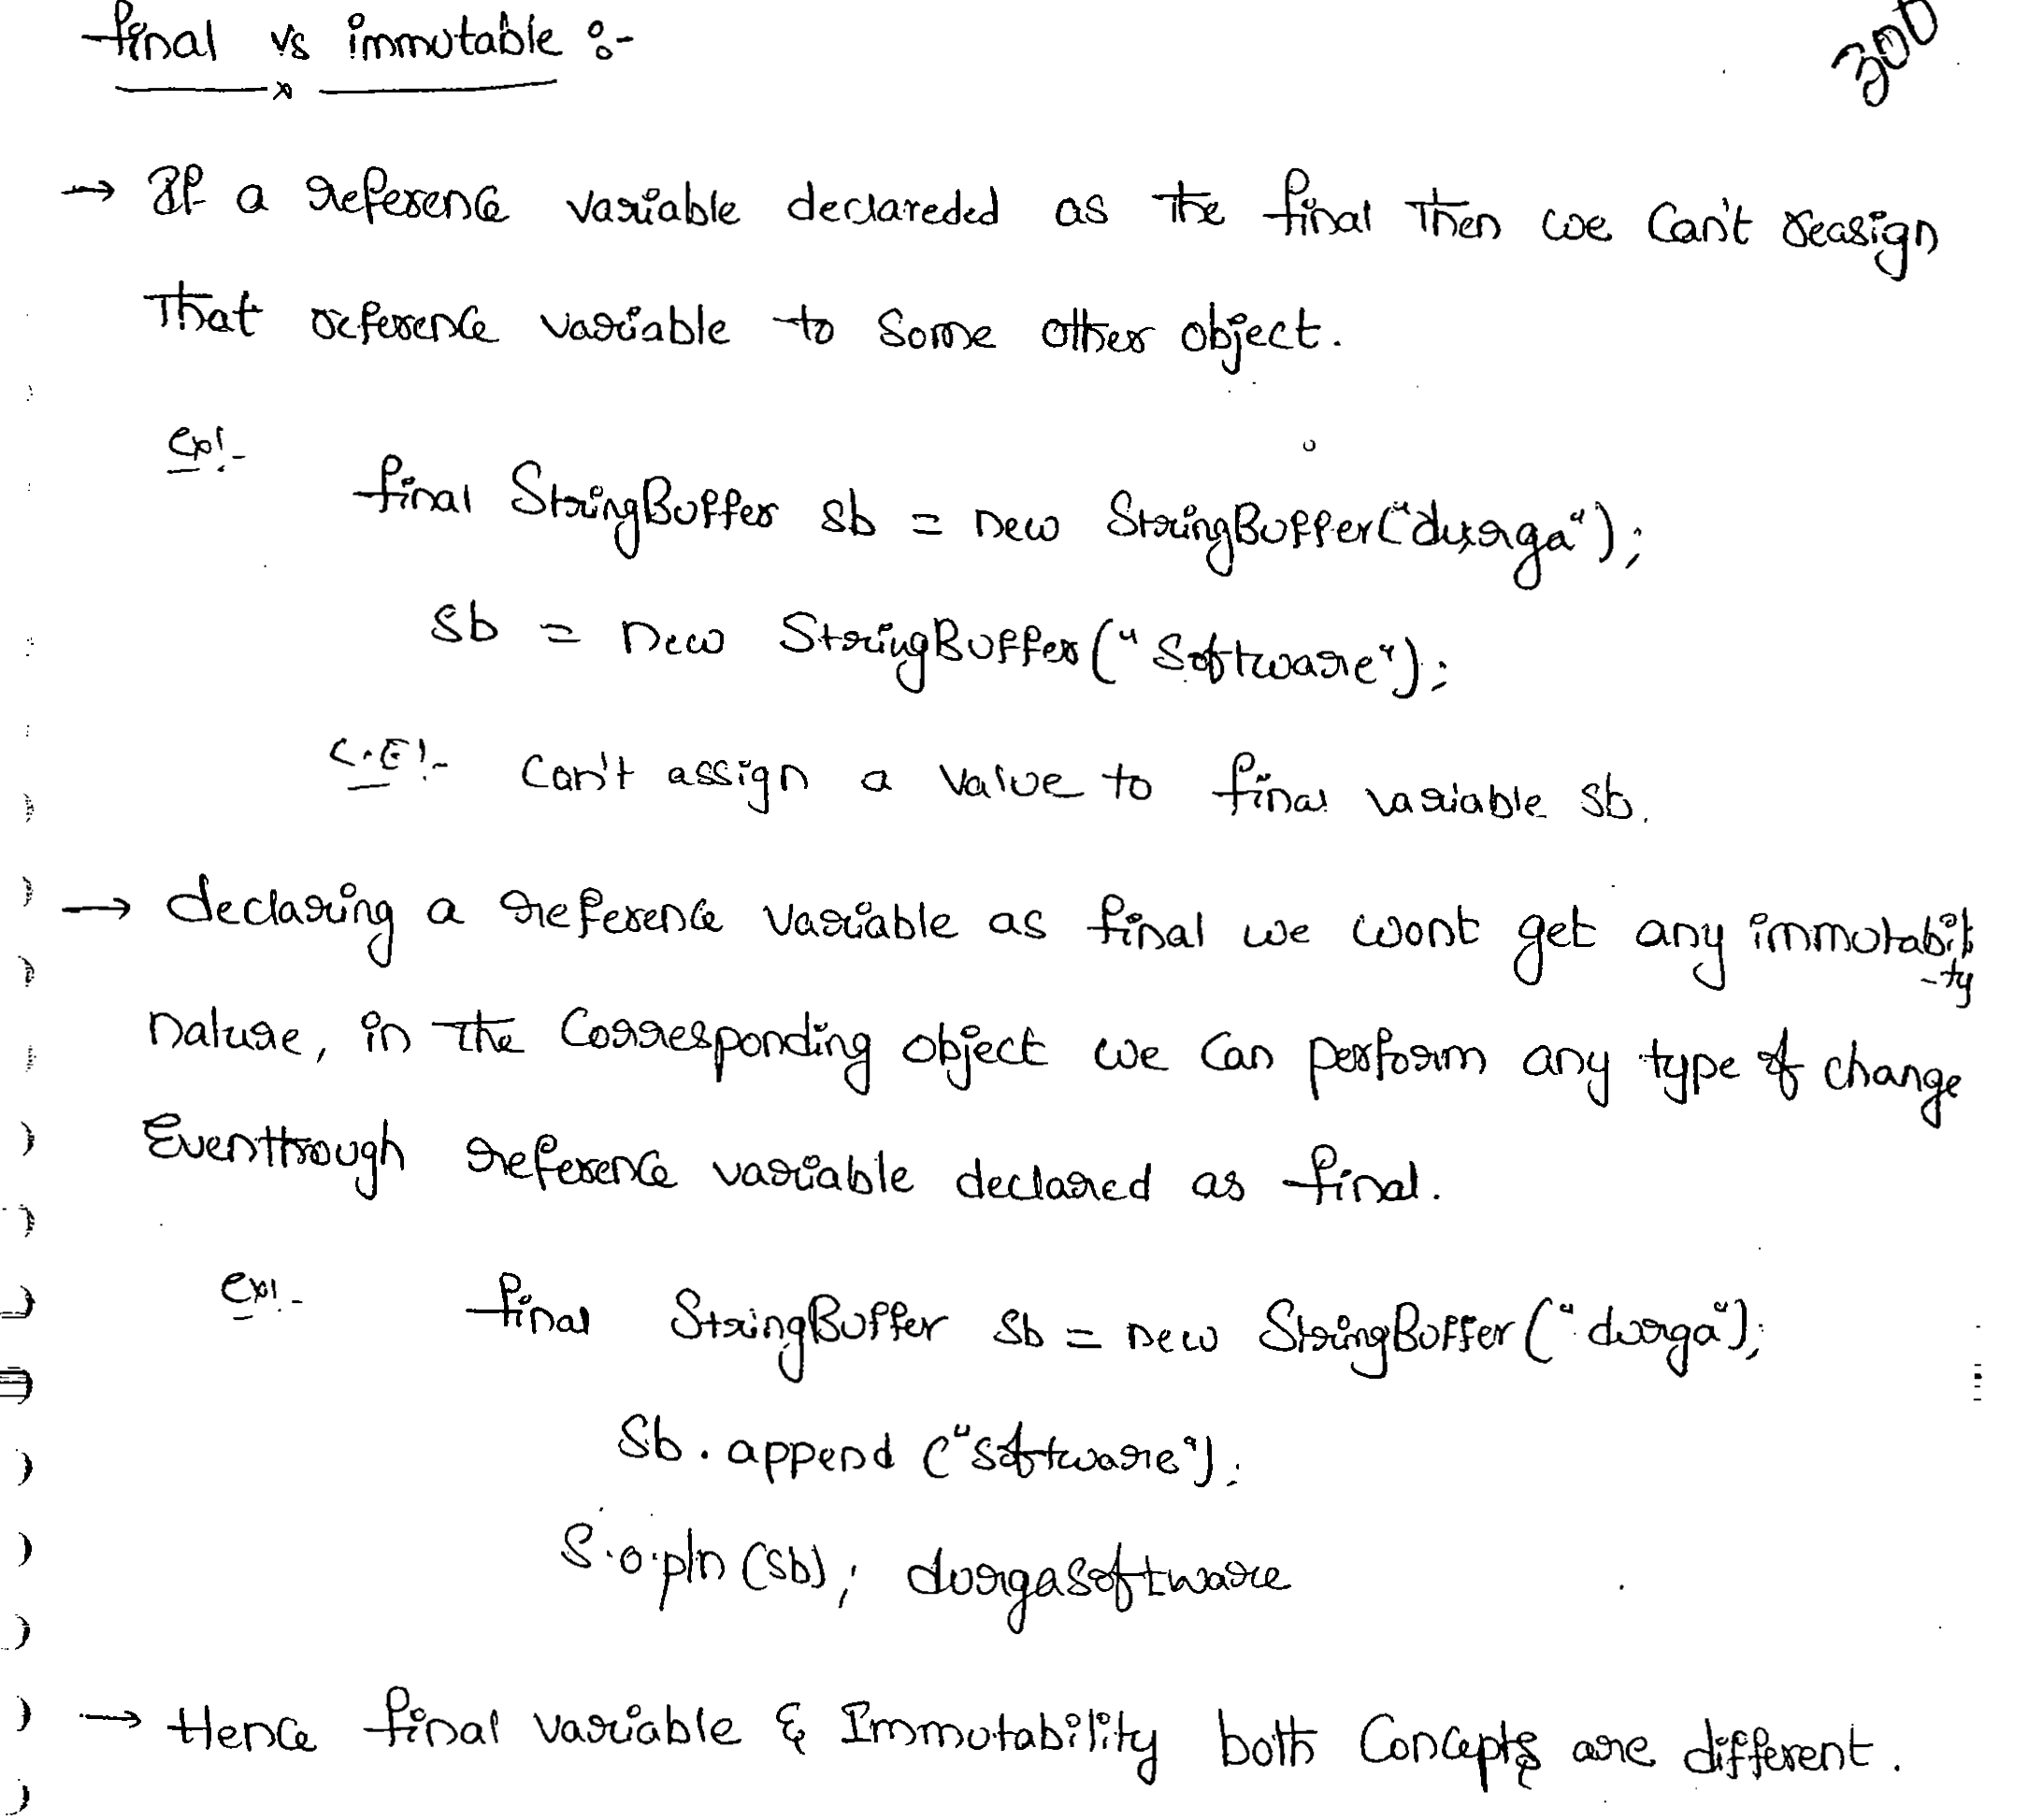 final vs immutable :-
300
→ If a reference variable declareded as the final then we can't reasign
that reference variable to some other object.
Ex:-
final StringBuffer sb = new StringBuffer("durga");
sb = new StringBuffer("Software");
C.E:- can't assign a value to final variable sb.
→ declaring a reference variable as final we wont get any immutabili
-ty
nature, in the corresponding object we can perform any type of change
Eventhrough reference variable declared as final.
ex:- final StringBuffer sb = new StringBuffer("durga");
sb.append("software");
S.o.pln(sb); durgasoftware
→ Hence final variable & Immutability both Concepts are different.